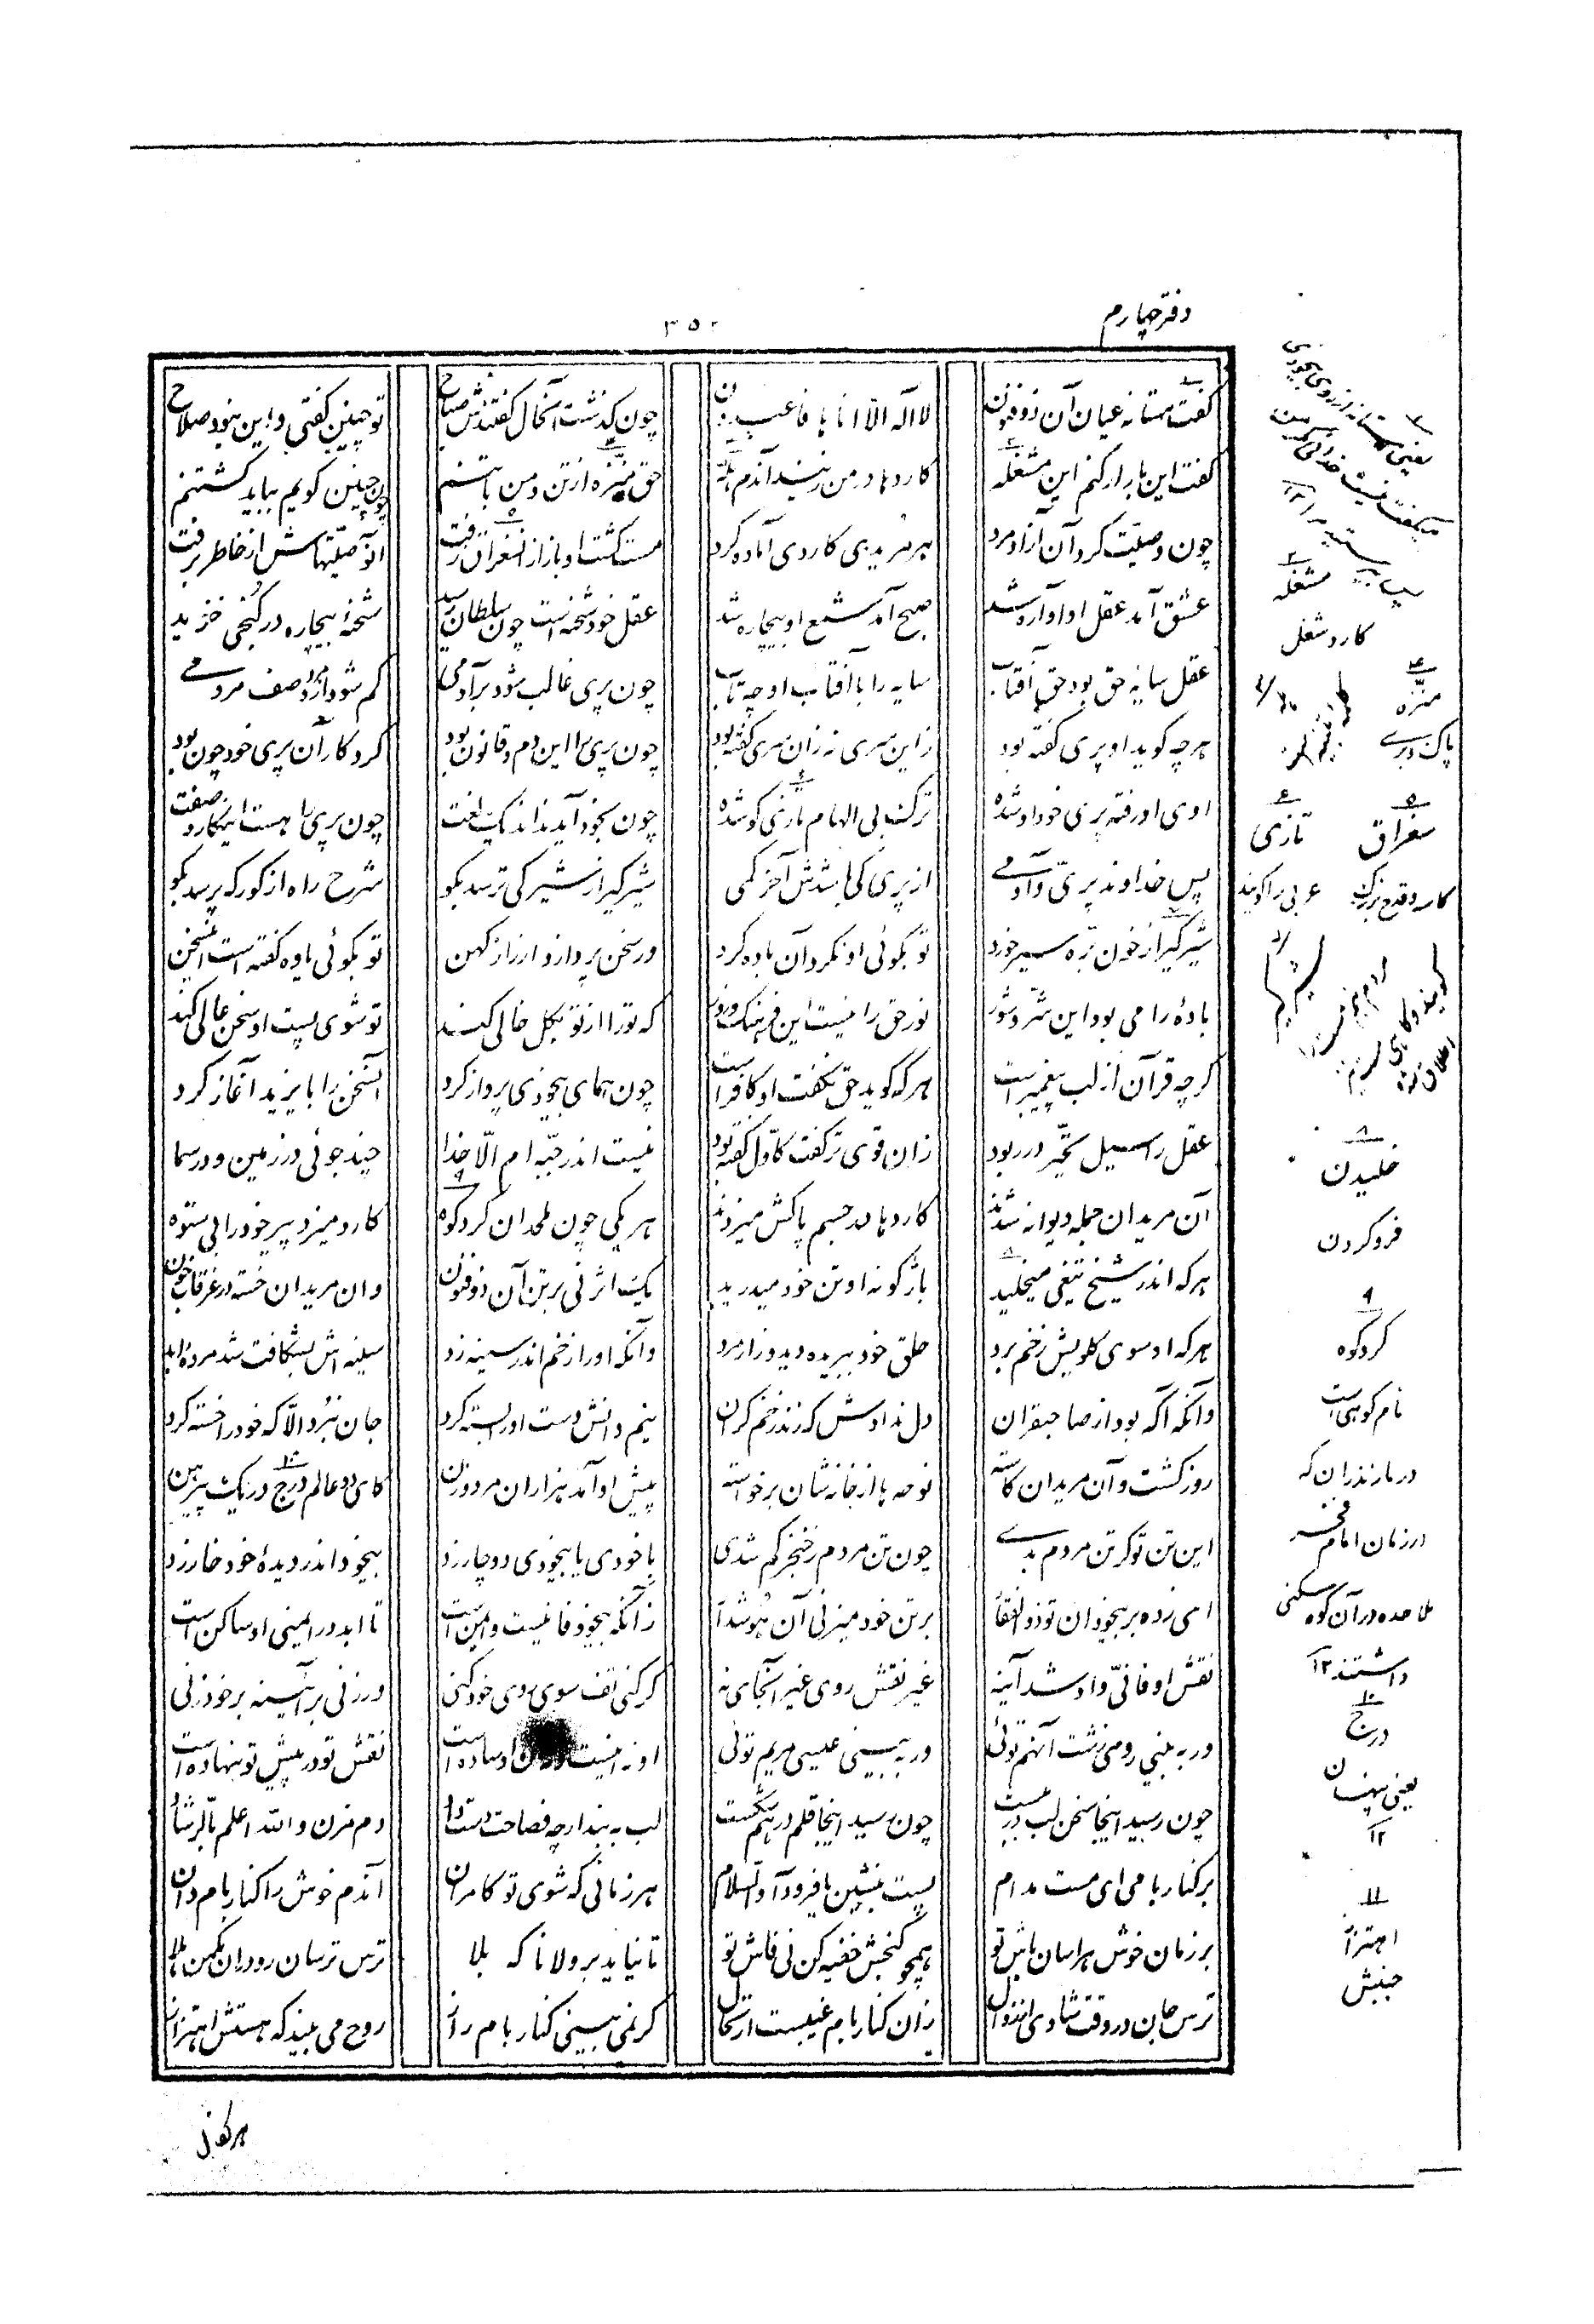 دفتر چهارم
۳۵۰
گفت مستانه عیان آن ذوفنون لا اله الا انا ها فاعبدون چون گذشت آنحال گفتندش صباح تو چنین گفتی و این نبود صلاح
گفت این بار ار کنم این مشغله کاردها در من زنید آندم هله حق منزه از تن و من با تنم چون چنین گویم بباید کشتنم
چون وصیت کرد آن آزاد مرد هر مریدی کاردی آماده کرد مست گشت او باز از آن سغراق زفت آن وصیتهاش از خاطر برفت
عشق آمد عقل او آواره شد صبح آمد شمع او بیچاره شد عقل خود شحنه است چون سلطان رسید شحنهٔ بیچاره در کنجی خزید
عقل سایه حق بود حق آفتاب سایه را با آفتاب او چه تاب چون پری غالب شود بر آدمی گم شود از مرد وصف مردمی
هرچه گوید او پری گفته بود زاین سری نه زان سری گفته بود چون پری را این دم و قانون بود کردگار آن پری خود چون بود
اوی او رفته پری خود او شده ترک بی الهام تازی گو شده چون بخود آید نداند یک لغت چون پری را هست این کار و صفت
پس خداوند پری و آدمی از پری کی باشدش آخر کمی شیرگیر از شیر کی ترسد بگو شرح راه از کور که پرسد بگو
شیرگیر از خون نره شیر خورد تو بگوئی او نکرد آن باده کرد ور سخن پردازد از راز کهن تو بگوئی باده گفته است این سخن
بادهٔ را می بود این شر و شور نور حق را نیست این فرهنگ و زور که تو را از تو بکل خالی کند تو شوی پست او سخن عالی کند
گرچه قرآن از لب پیغمبر است هر که گوید حق نگفت او کافر است چون همای بیخودی پرواز کرد آن سخن را بایزید آغاز کرد
عقل را سیل تحیر در ربود زان قوی تر گفت کاول گفته بود نیست اندر جبه ام الا خدا چند جوئی در زمین و در سما
آن مریدان جمله دیوانه شدند کاردها در جسم پاکش میزدند هر یکی چون ملحدان گردکوه کارد میزد پیر خود را بی ستوه
هر که اندر شیخ تیغی میخلید بازگونه او تن خود میدرید یک اثر نی بر تن آن ذوفنون وان مریدان خسته در غرقاب خون
هر که او سوی گلویش زخم برد حلق خود ببریده دید و زار مرد وآنکه او را زخم اندر سینه زد سینه اش بشکافت شد مردهٔ ابد
وآنکه آگه بود از صاحبقران دل ندادش که زند زخم گران نیم دانش دست او را بسته کرد جان نبرد الا که خود را خسته کرد
روز گشت و آن مریدان کاسته نوحه ها از خانه شان برخواسته پیش او آمد هزاران مرد و زن کای دو عالم درج در یک پیرهن
این تن تو گر تن مردم بدی چون تن مردم ز خنجر گم شدی با خودی با بیخودی دوچار زد بیخود اندر دیدهٔ خود خار زد
ای زده بر بیخودان تو ذوالفقار بر تن خود میزنی آن هوش دار زآنکه بیخود فانیست و ایمن است تا ابد در ایمنی او ساکن است
نقش او فانی و او شد آینه غیر نقش روی غیر آنجای نه گر کنی تف سوی روی خود کنی ور زنی بر آینه بر خود زنی
ور به بینی روی زشت آنهم توئی ور به بینی عیسی مریم توئی او نه اینست و نه آن او ساده است نقش تو در پیش تو بنهاده است
چون رسید اینجا سخن لب در ببست چون رسید اینجا قلم در هم شکست لب به بند ار چه فصاحت دست داد دم مزن و الله اعلم بالرشاد
بر کنار بامی ای مست مدام پست بنشین یا فرود آ والسلام هر زمانی که شوی تو کامران آندم خوش را کنار بام دان
بر زمان خوش هراسان باش تو همچو گنجش خفیه کن نی فاش تو تا نیاید بر ولا ناگه بلا ترس ترسان رو در آن مکمن هلا
ترس جان در وقت شادی از زوال زان کنار بام غیبست ارتحال گر نمی بینی کنار بام راز روح می بیند که هستش اهتزاز
مشغله
کار و شغل
منزه
پاک و بری
۵
سغراق
کاسه و قدح بزرگ
تازی
عربی را گویند
شیرگیر
۸
خلیدن
فرو کردن
۹
گردکوه
نام کوهی است
در مازندران که
در زمان امام فخر
ملاحده در آن کوه سکنی
داشتند ۱۲
۱۰
درج
یعنی پنهان
۱۲
۱۱
اهتزاز
جنبش